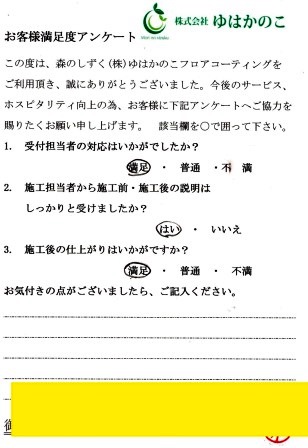 株式会社 ゆはかのこ
お客様満足度アンケート
この度は、森のしずく(株)ゆはかのこフロアコーティングを
ご利用頂き、誠にありがとうございました。今後のサービス、
ホスピタリティ向上の為、お客様に下記アンケートへご協力を
賜りたくお願い申し上げます。 該当欄を○で囲って下さい。
1. 受付担当者の対応はいかがでしたか?
満足 ・ 普通 ・ 不 満
2. 施工担当者から施工前・施工後の説明は
しっかりと受けましたか?
はい ・ いいえ
3. 施工後の仕上がりはいかがですか?
満足 ・ 普通 ・ 不満
お気付きの点がございましたら、ご記入ください。